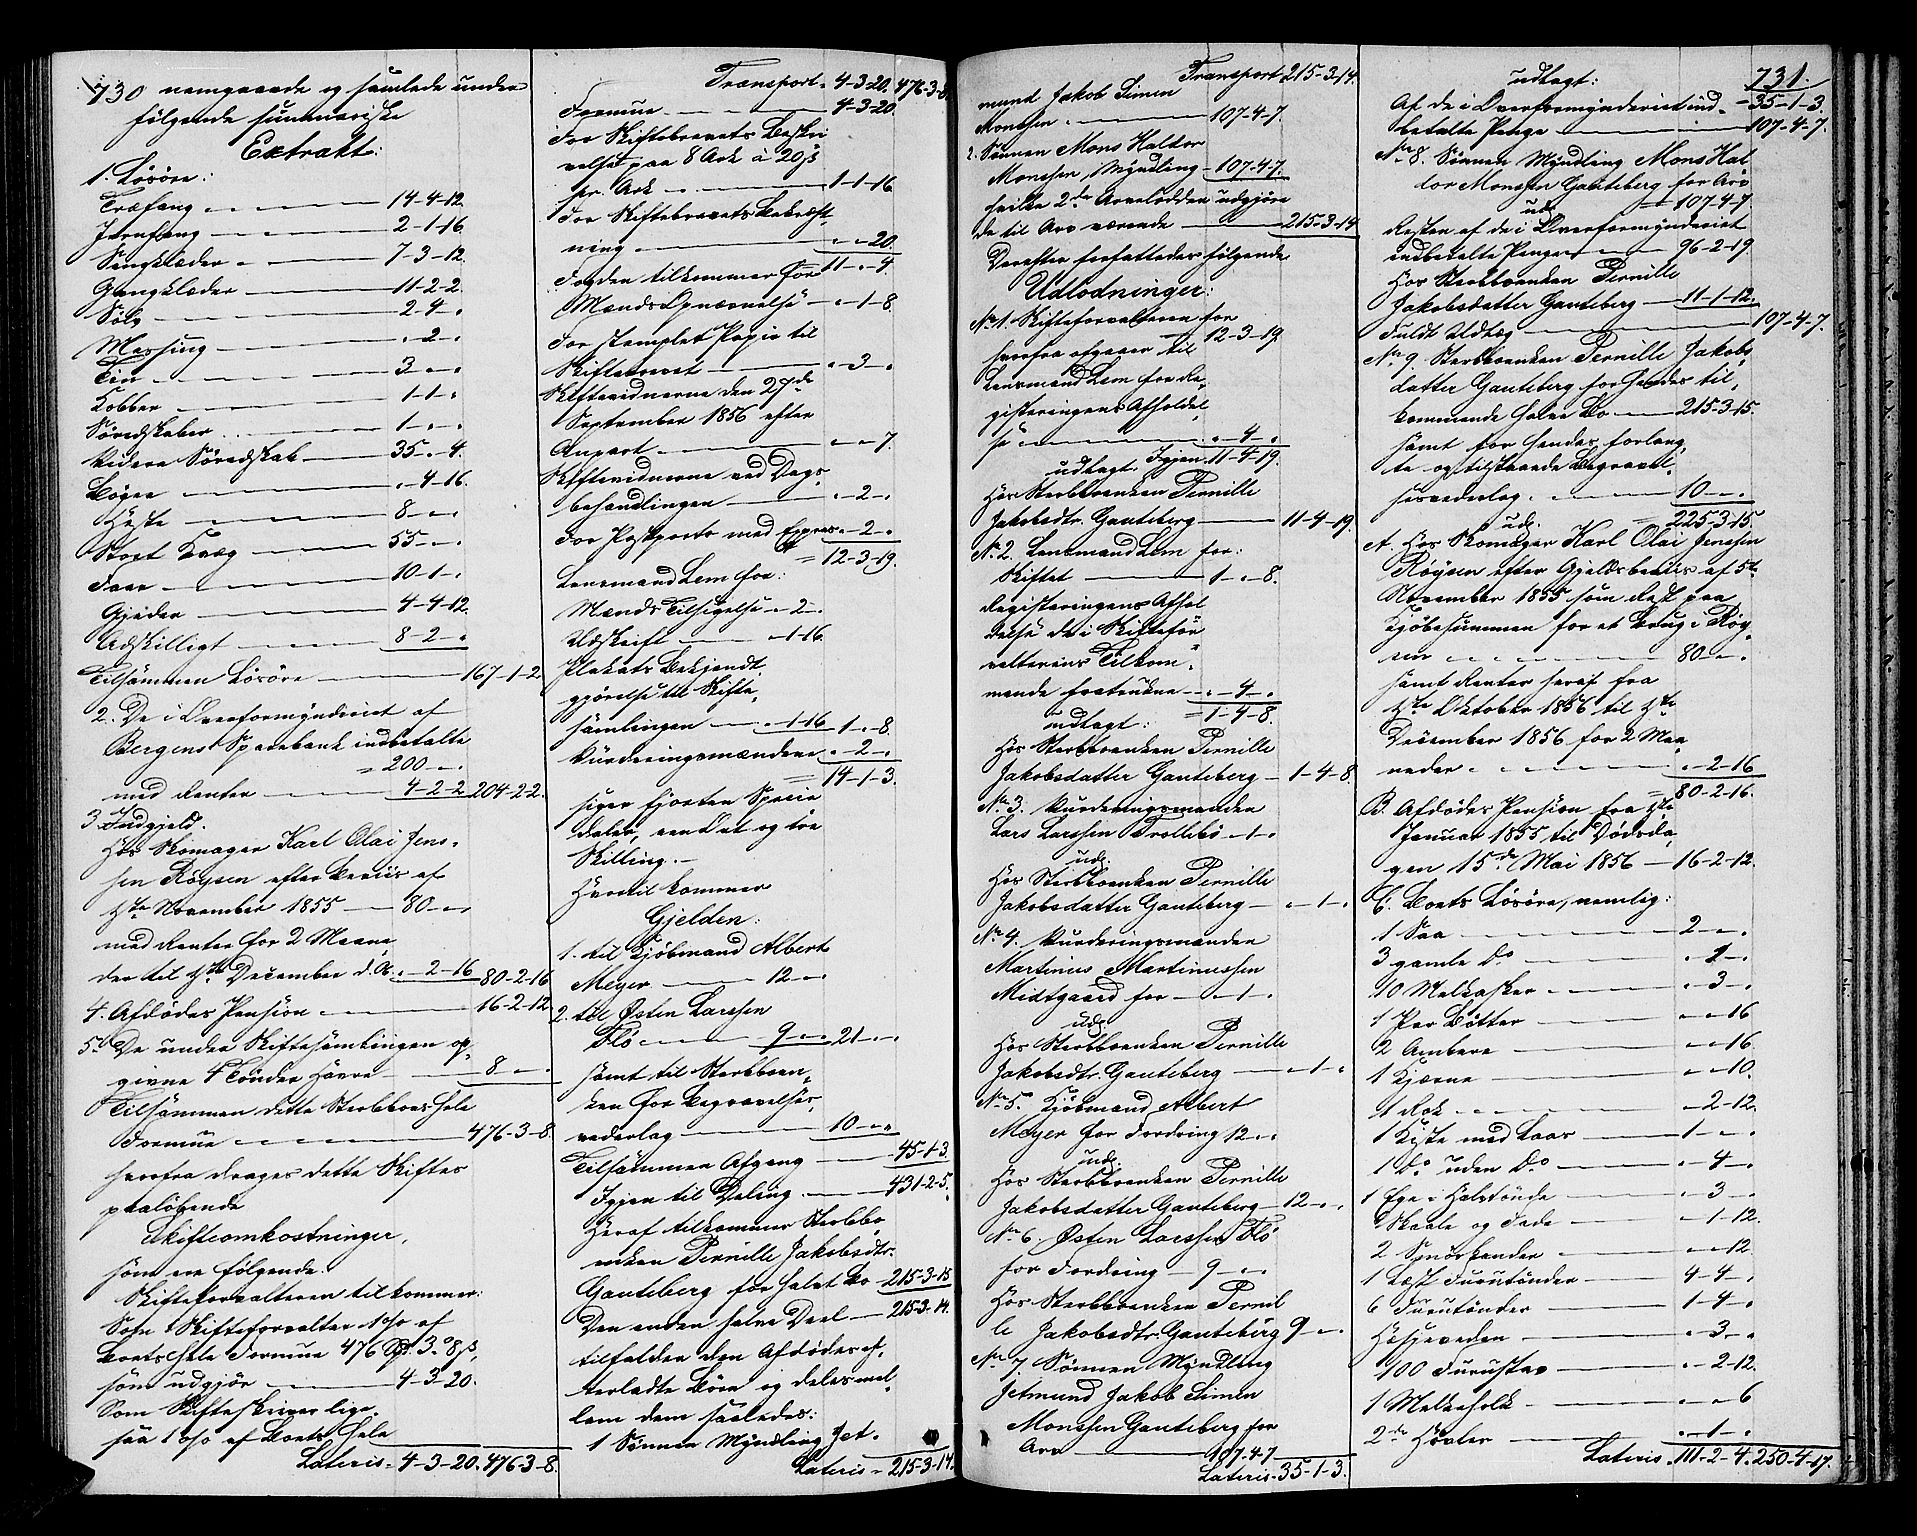 730 nemgaaede og samlede under
følgende summariske
Extrakt:
1. Løsøre:
Træfang 14-4-12
Jernfang 2-1-16
Sengklæder 7-3-12
Gangklæder 11-2-2
Sølv 2-4-"
Messing "-2-"
Tin 3-"-"
Kobber 1-1-"
Søredskaber 1-"-"
Videre Søredskab 35-"-4
Bøger "-4-16
Heste 8-"-"
Stort Qvæg 55-"-"
Faar 10-1-"
Gjeder 4-4-12
Adskilligt 8-2-"
Tilsammen Løsøre 167-1-2
2. De i Overformynderiet af
Bergens Sparebank indbetalte
= 200-"-"
med Renter 4-2-2 204-2-2
3. Indgjeld.
Hos Skomager Karl Olai Jens-
sen Røysen efter Beviis af
5te November 1855 80-"-"
med Renter for 2 Maane
der til 5te December d. A. "-2-16 80-2-16
4. Afdødes Pension 16-2-12
5. De under Skiftesamlingen op-
givne 4 Tønder Havre 8-"-"
Tilsammen dette Sterbboes hele
Formue 476-3-8
hvorfra drages dette Skiftes
paaløbende
Skifteomkostninger,
som ere følgende:
Skifteforvalteren tilkommer:
Som Skifteforvalter 1 o/o af
Boets hele Formue 476 Sp. 3 o 8 s,
som udgjør 4-3-20
Som Skifteskriver lige-
saa 1 o/o af Boets hele
Lateris 4-3-20. 476-3-8
Transport 4-3-20. 476-3-8
Formue 4-3-20
For Skiftebrevets Beskri
velse paa 8 Ark à 20 s
pr. Ark 1-1-16
For Skiftebrevets Bekræft
ning "-"-20
11-"-4
Fogden tilkommer for
Mænds Opnævnelse "-1-8
For stemplet Papir til
Skiftebrevet "-3-"
Skiftevidnerne den 27de
September 1856 efter
Anpart "-"-7
Skiftevidnerne ved Dags-
behandlingen "-2-"
For Postporto med Expres "-2-"
= 12-3-19
Lensmand Lem for:
Mænds Tilsigelse "-2-"
Udskrift "-1-16
Plakats Bekjendt-
gjørelse til Skifte-
samlingen "-1-16 1-"-8
Vurderingsmændene "-2-"
= 14-1-3
siger fjorten Specie
daler, een Ort og tre
Skilling.-
Hvortil kommer
Gjelden:
1. til Kjøbmand Albert
Meyer 12-"-"
2. til Østen Larssen
Flø 9-"-" 21-"-"
samt til Sterbboen-
ken for Begravelses-
vederlag 10-"-"
Tilsammen Afgang 45-1-3
Igjen til Deling 431-2-5
Heraf tilkommer Sterbbo
enken Pernille Jakobsdtr.
Gauteberg for halvt Bo 215-3-15
Den anden halve Deel 215-3-14
tilfalder den Afdødes ef-
terladte Børn og deles mel-
lem dem saaledes:
1 Sønnen Myndling Jet-
Lateris 215-3-14
Transport 215-3-14
mund Jakob Simen
Monsen 107-4-7
2. Sønnen Mons Haldor
Monssen, Myndling 107-4-7
hvilke 2de Arvelodder udgjøre
de til Arv værende 215-3-14
Derefter forfattedes følgende
Udlodninger:
No 1. Skifteforvalteren for
= 12-3-19
hvorfra afgaaer til
Lensmand Lem for Re-
gistreringens Afholdel
se "-4-"
Igjen 11-4-19
udlagt
Hos Sterbboenken Pernille
Jakobsdtr. Gauteberg 11-4-19
No 2. Lensmand Lem for:
Skiftet 1-"-8
Registreringens Afhol
delse de i Skiftefor
valterens Tilkom-
mende fratrukne "-4-"
= 1-4-8
udlagt:
Hos Sterbboenken Pernille
Jakobsdatter Gauteberg 1-4-8
No 3. Vurderingsmanden
Lars Larssen Trollebø "-1-"
udl.
Hos Sterbboenken Pernille
Jakobsdatter Gauteberg "-1-"
No 4. Vurderingsmanden
Martinus Martinussen
Midtgaard for "-1-"
udl.
Hos Sterbboenken Pernille
Jakobsdtr. Gauteberg "-1-"
No 5. Kjøbmand Albert
Meyer for Fordring 12-"-"
udl.
Hos Sterbboenken Pernille
Jakobsdatter Gauteberg 12-"-"
No 6. Østen Larssen Flø
for Fordring 9-"-"
Hos Sterbboenken Pernil
le Jakobsdtr. Gauteberg 9-"-"
No 7. Sønnen Myndling
Jetmund Jakob Simen
Monssen Gauteberg for
Arv 107-4-7
Lateris 35-1-3
udlagt: 731.
-35-1-3
Af de i Overformynderiet ind-
betalte Penge 107-4-7
No 8. Sønnen Myndling Mons Hal
dor Monssen Gauteberg for Arv
= 107-4-7
udl.
Resten af de i Overformynderiet
indbetalte Penge 96-2-19
Hos Sterbboenken Pernille
Jakobsdatter Gauteberg 11-1-12
Fuldt Udlæg 107-4-7
No 9. Sterbboenken Pernille Jakobs-
datter Gauteberg for hendes til-
kommende halve Bo 215-3-15
samt for hendes forlang-
te og tilstaaede Begravel-
sesvederlag 10-"-"
= 225-3-15
udl.
A. Hos Skomager Karl Olai Jenssen
Røysen efter Gjeldsbeviis af 5te
November 1855 som Rest paa
Kjøbesummen for et Brug i Røy
sen 80-"-"
samt Renter heraf fra
5te Oktober 1856 til 5te
December 1856 for 2 Maa
neder "-2-16
= 80-2-16
B. Afdødes Pension fra 1ste
Januar 1855 til Dødsda-
gen 15de Mai 1856 16-2-12
C. Boets Løsøre, nemlig:
1 Saa 2-"
3 gamle Do "-1-"
10 Melkasker "-3-"
1 Par Bøtter "-"-16
2 Ambere "-"-16
1 Kjerne "-"-10
1 Rok "-2-12
1 Kiste med Laas 1-"
1 Do uden Do "-4-"
1 Ege i Halvtønde "-3-"
Skaale og Fade "-1-12
2 Smørspander "-"-12
1 Læst Furutønder 4-4-"
6 Furutønder 1-4-"
Hesjeveden "-3-"
100 Furustav "-2-12
1 Melkeholk "-"-6
2de Høvler "-1-"
Lateris 111-2-4. 250-4-17.